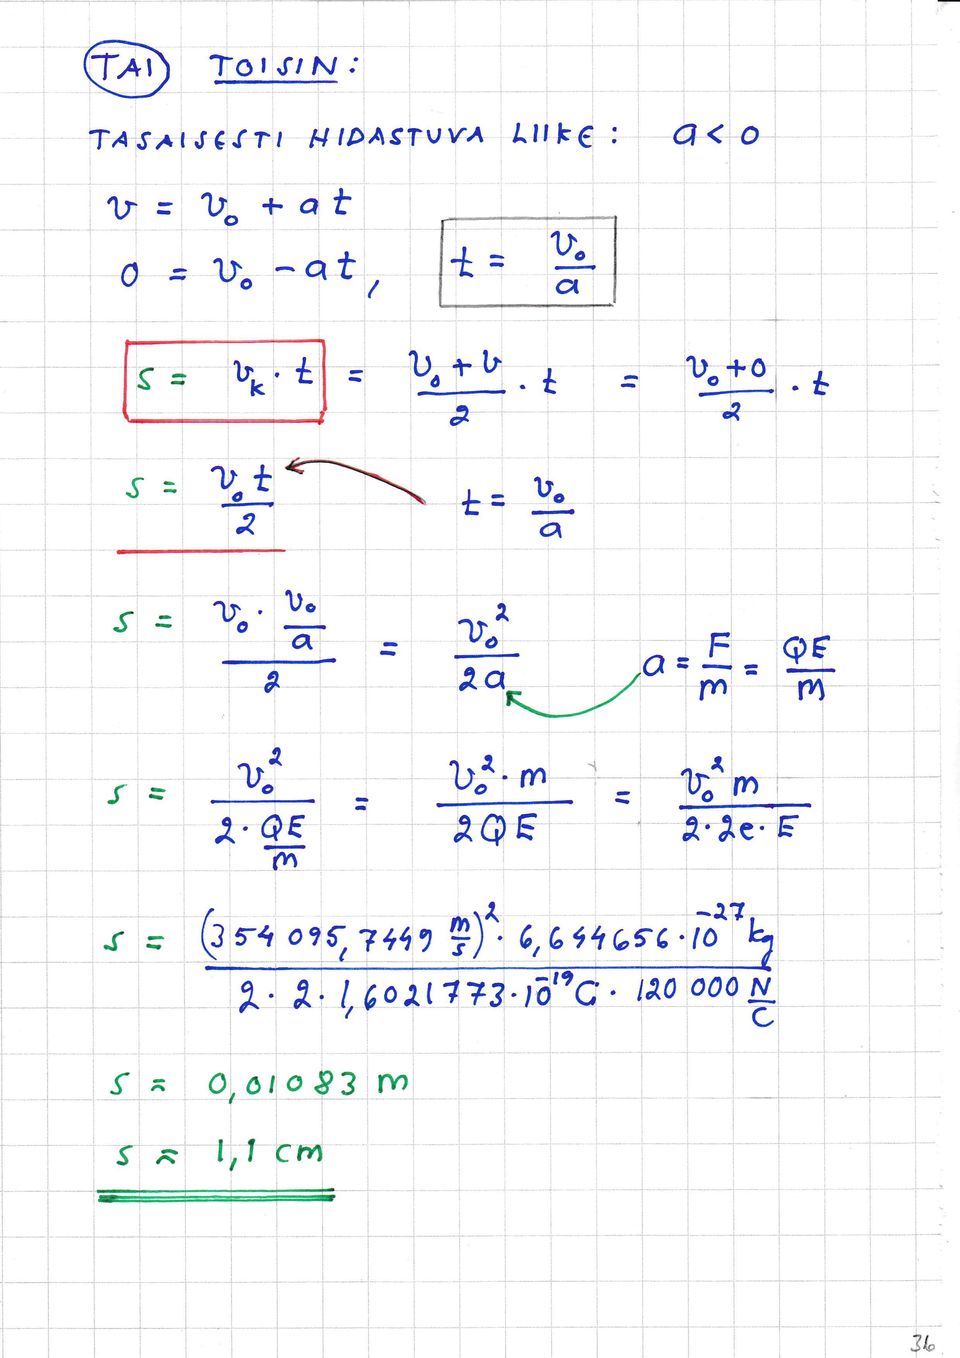 TAI TOISIN:
TASAISESTI HIDASTUVA LIIKE: a < 0
v = v₀ + at
0 = v₀ - at, t = v₀/a
s = vₖ · t = (v₀ + v)/2 · t = (v₀ + 0)/2 · t
s = v₀t/2 t = v₀/a
s = (v₀ · v₀/a)/2 = v₀²/2a a = F/m = QE/m
s = v₀²/(2 · QE/m) = v₀² · m/2QE = v₀²m/(2 · 2e · E)
s = (354 095,7449 m/s)² · 6,644656 · 10⁻²⁷ kg / (2 · 2 · 1,6021773 · 10⁻¹⁹ C · 120 000 N/C)
s ≈ 0,01083 m
s ≈ 1,1 cm
36